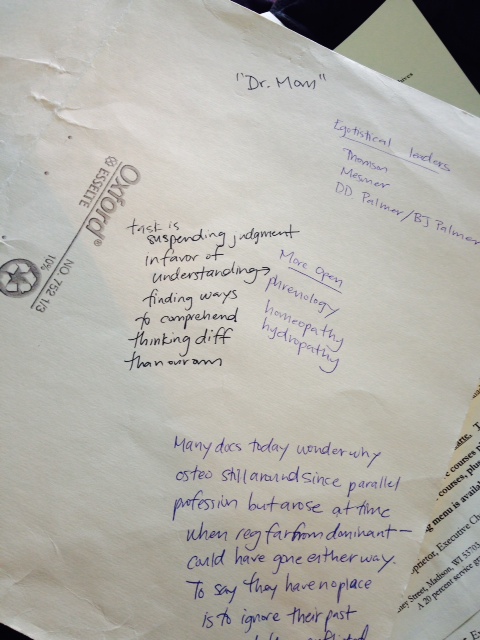 "Dr. Mom"
Egotistical leaders
Thomson
Mesmer
DD Palmer/BJ Palmer
Oxford®
ESSELTE
NO. 752 1/3
10%
task is
suspending judgment
in favor of
understanding→
finding ways
to comprehend
thinking diff
than our own
More Open
phrenology
homeopathy
hydropathy
Many docs today wonder why
osteo still around since parallel
profession but arose at time
when reg far from dominant—
could have gone either way.
To say they have no place
is to ignore their past
courses, plus
g menu is availa
oprietor, Executive Che
ney Street, Madison, WI 53703
A 20 percent service gr